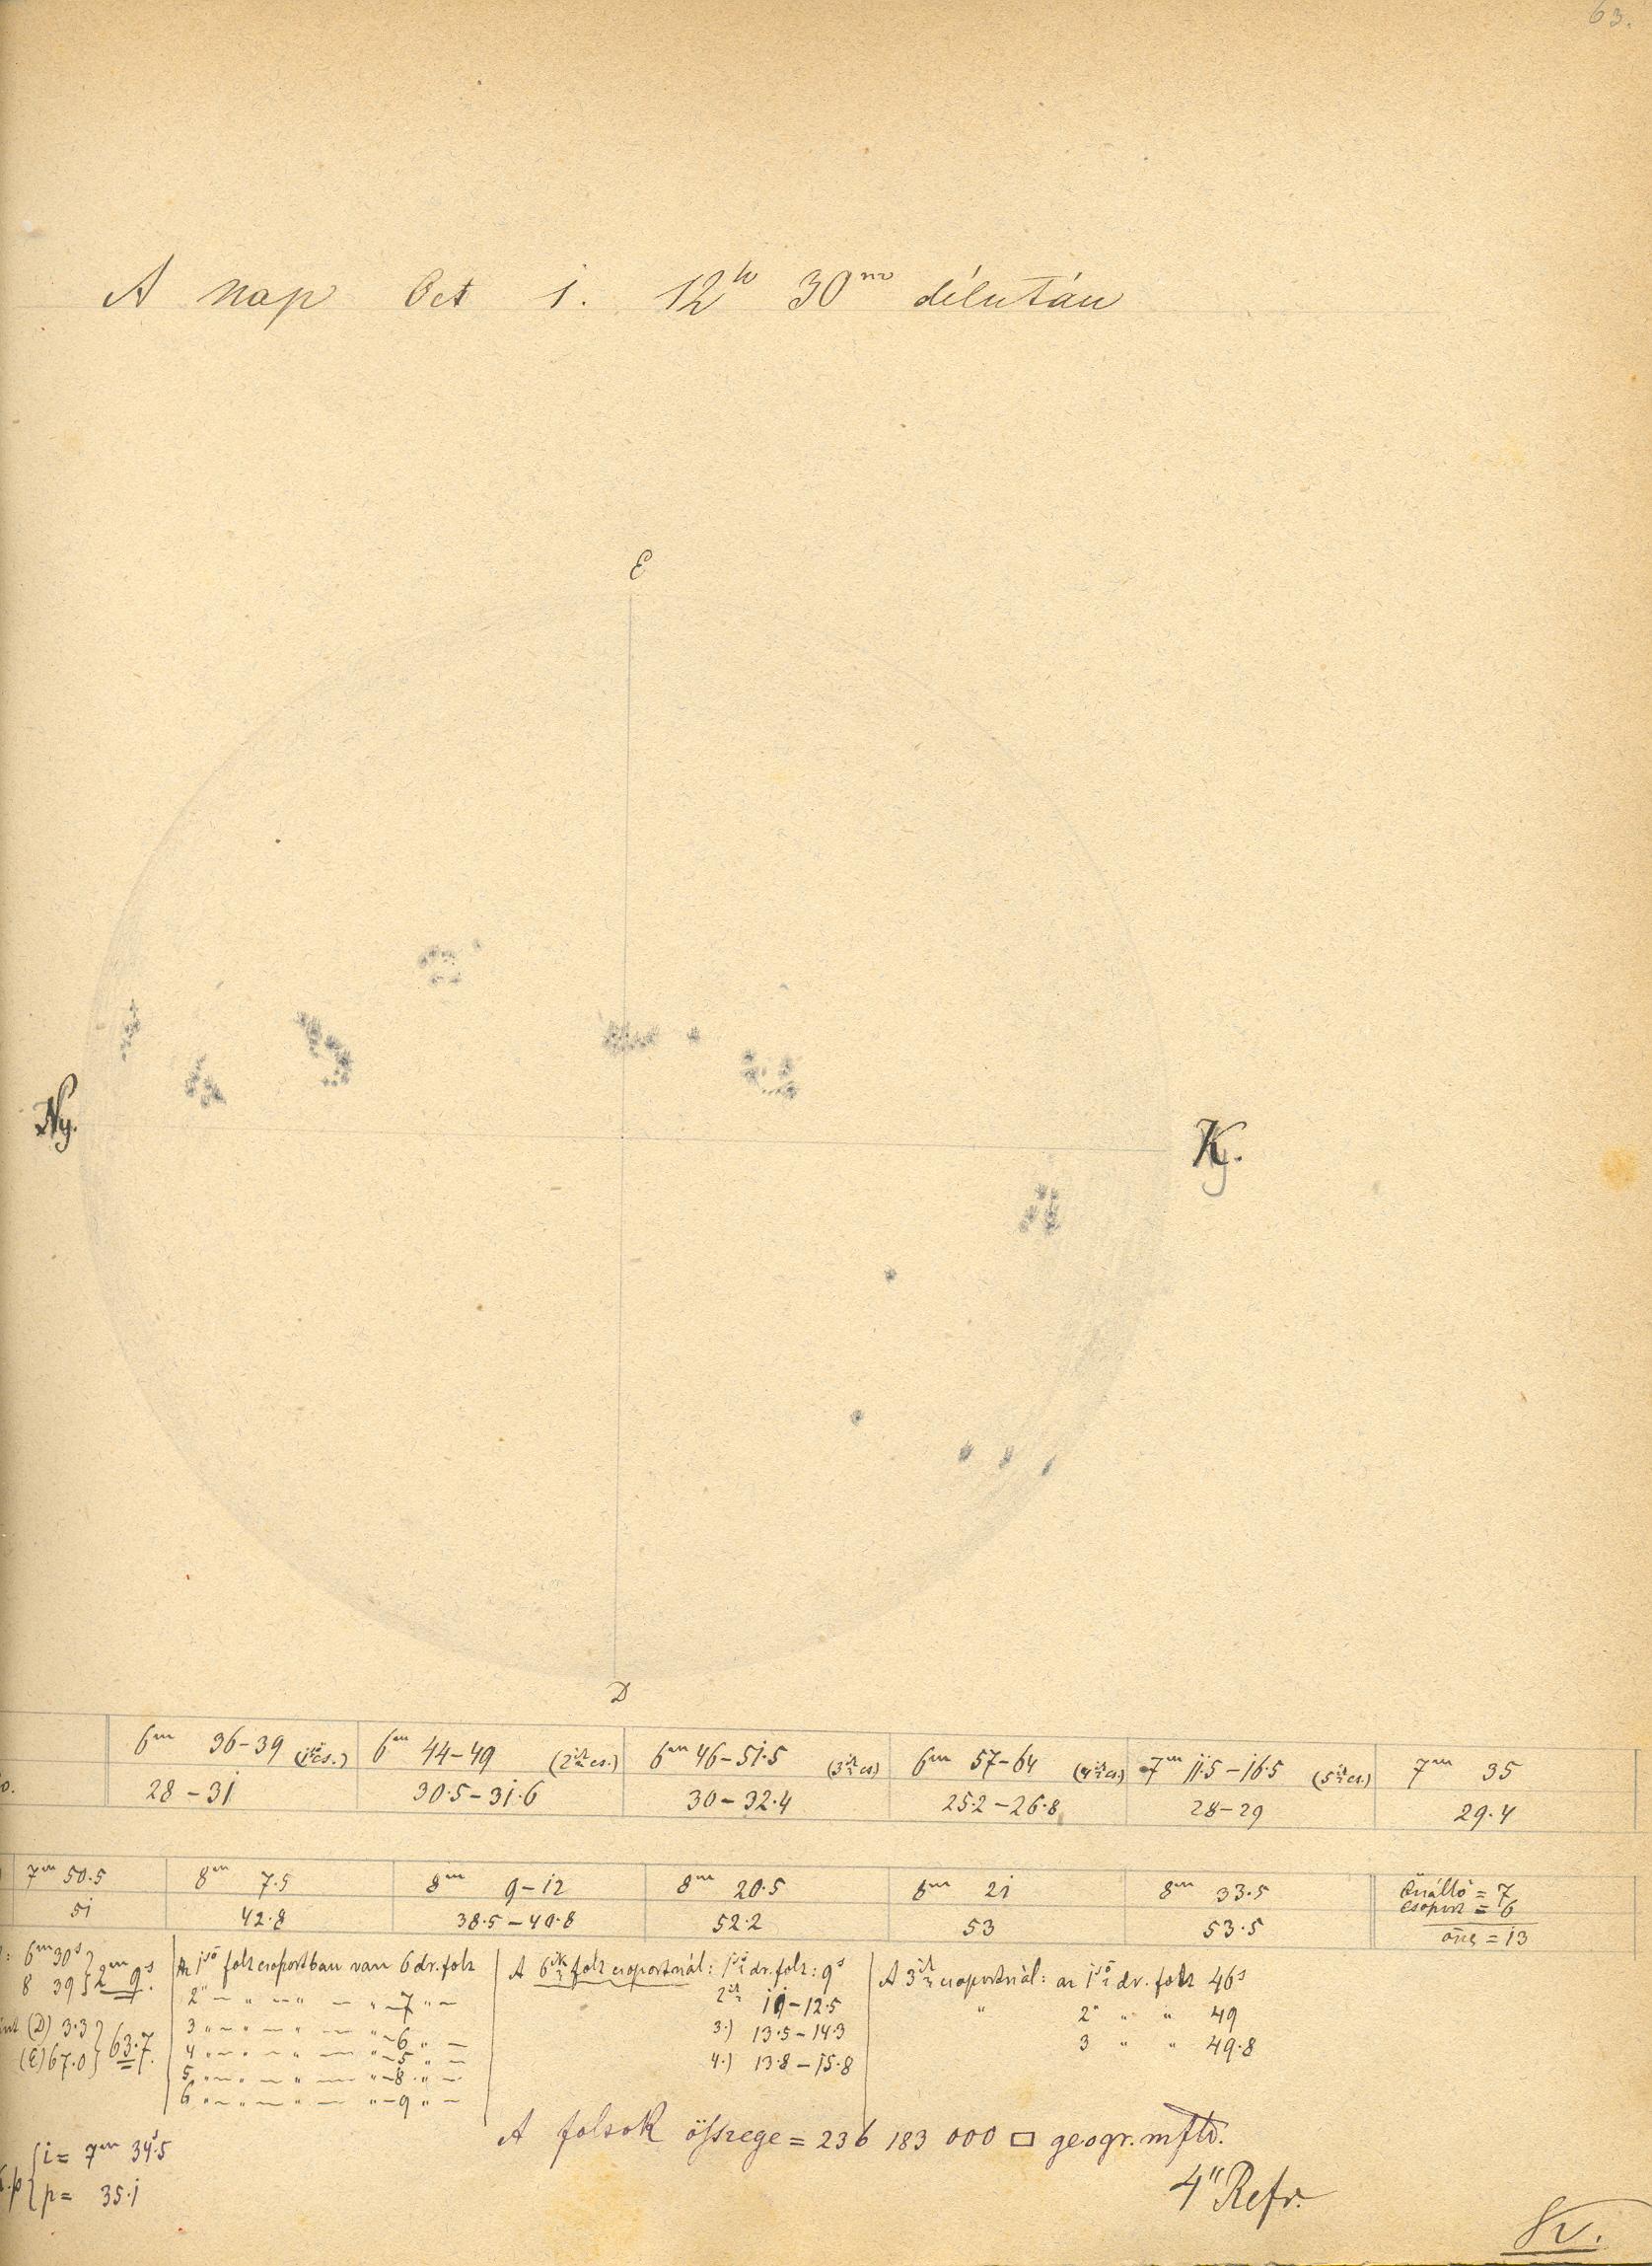 63.
A nap Oct 1. 12h 30m délután
E
Ny.
K.
D
6m 36-39 (1ső cs.) 6m 44-49 (2ik cs.) 6m 46-51.5 (3ik cs) 6m 57-64 (4ik cs.) 7m 11.5-16.5 (5ik cs.) 7m 35
28-31 30.5-31.6 30-32.4 25.2-26.8 28-29 29.4
7m 50.5 8m 7.5 8m 9-12 8m 20.5 8m 21 8m 33.5 Önálló = 7
51 42.8 38.5-40.8 52.2 53 53.5 Csoport = 6
össz = 13
: 6m 30s } 2m 9s.
8 39
(D) 3.3 } 63.7.
(E) 67.0
Az 1ső folt csoportban van 6 dr. folt
2 " — " — " — " — 7 " —
3 " — " — " — " — 6 " —
4 " — " — " — " — 5 " —
5 " — " — " — " — 8 " —
6 " — " — " — " — 9 " —
A 6ik folt csoportnál: 1ső dr. folt: 9s
2ik 11-12.5
3.) 13.5-14.3
4.) 13.8-15.8
A 3ik csoportnál: az 1ső dr. folt 46s
" 2 " " 49
3 " " 49.8
A foltok összege = 236 183 000 □ geogr. mfld.
i = 7m 34.5
p = 35.1
4" Refr.